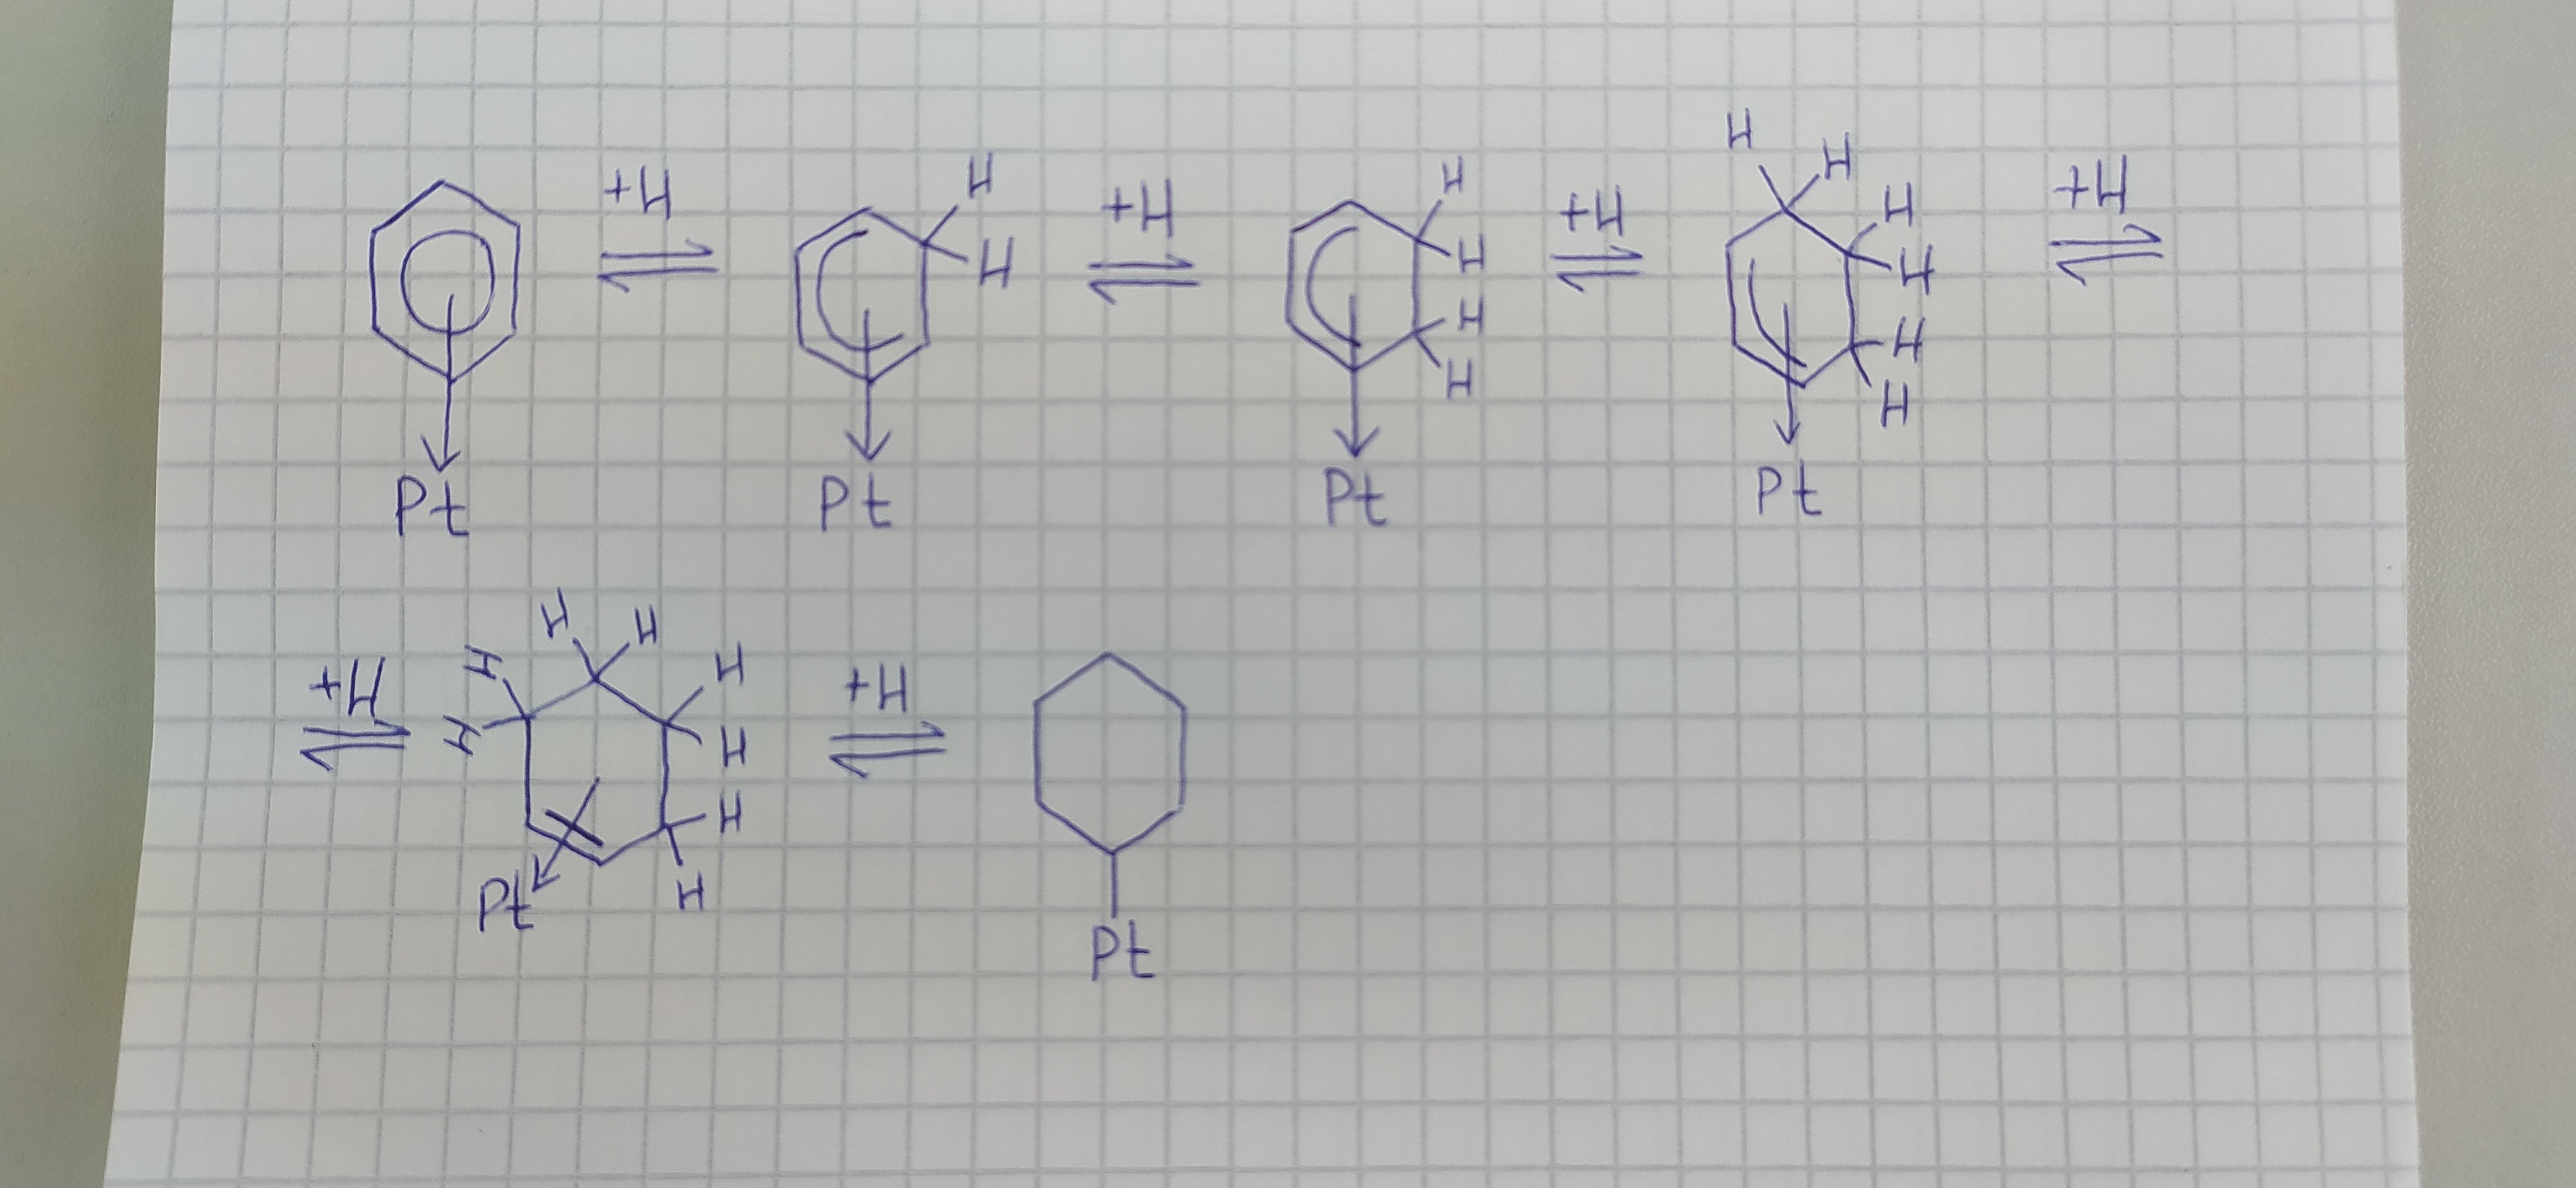 +H H H +H H H H H +H H H H H H H +H
Pt Pt Pt Pt
+H H H H H H H H H +H
Pt Pt